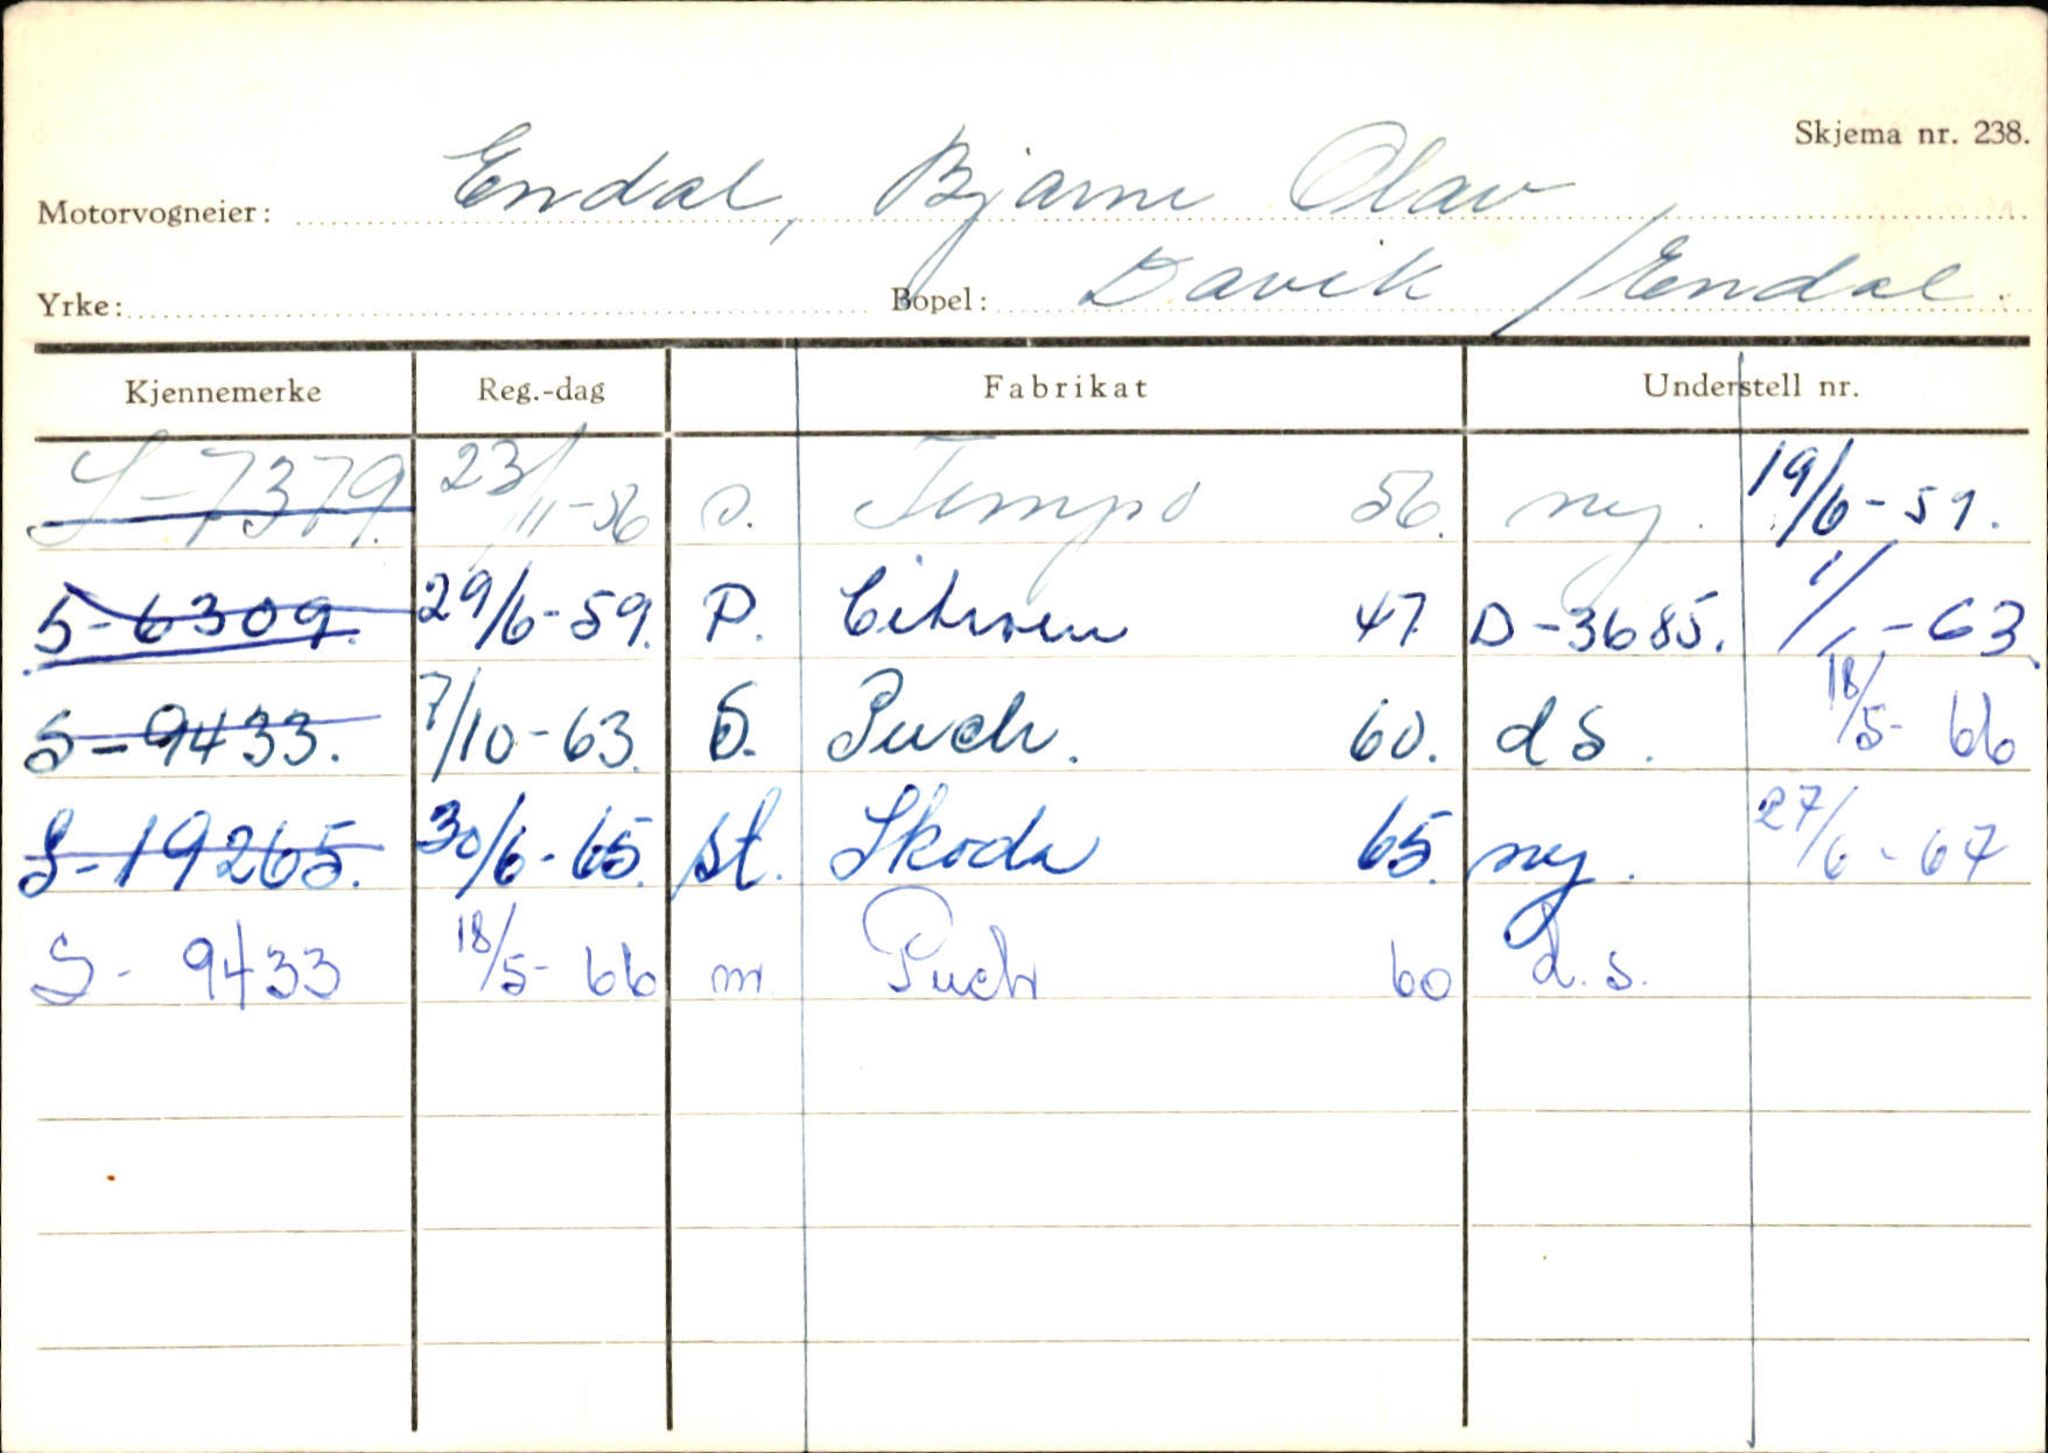 Skjema nr. 238.
Motorvogneier: Endal, Bjarne Olav
Yrke: Bopel: Davik / Endal.
Kjennemerke Reg.-dag Fabrikat Understell nr.
S-7379. 23/11-56 s. Tempo 56. ny. 19/6-59.
S-6309. 29/6-59. P. Citroen 47 D-3685. 1/1-63.
S-9433. 7/10-63. S. Puch. 60. d s. 18/5-66
S-19265. 30/6-65. st. Skoda 65. ny. 27/6-67
S-9433 18/5-66 m Puch 60 d.s.